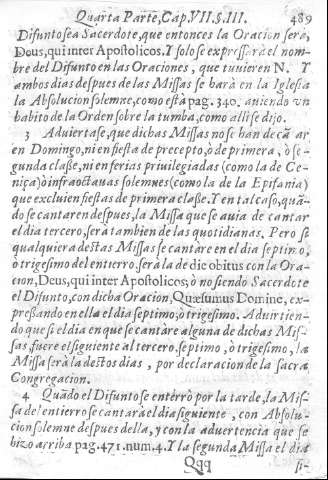 Quarta Parte, Cap. VII. §. III. 489
Difunto sea Sacerdote, que entonces la Oracion serà,
Deus, qui inter Apostolicos. Y solo se expressarà el nom-
bre del Difunto en las Oraciones, que tuvieren N. Y
ambos dias despues de las Missas se harà en la Iglesia
la Absolucion solemne, como està pag. 340. aviendo vn
habito de la Orden sobre la tumba, como alli se dijo.
3 Aduiertase, que dichas Missas no se han de cātar
en Domingo, ni en fiesta de precepto, ò de primera, ò se-
gunda classe, ni en ferias priuilegiadas (como la de Ce-
niça) ò infraoctauas solemnes (como la de la Epifania)
que excluien fiestas de primera classe. Y en tal caso, quã-
do se cantaren despues, la Missa que se auia de cantar
el dia tercero, serà tambien de las quotidianas. Pero si
qualquiera destas Missas se cantare en el dia septimo,
ò trigesimo del entierro serà la de die obitus con la Ora-
cion, Deus, qui inter Apostolicos; ò no siendo Sacerdote
el Difunto, con dicha Oracion, Quæsumus Domine, ex-
pressando en ella el dia septimo, ò trigesimo. Aduirtien-
do que si el dia en que se cantare alguna de dichas Mis-
sas, fuere el siguiente al tercero, septimo, ò trigesimo, la
Missa serà la destos dias, por declaracion de la sacra
Congregacion.
4 Quãdo el Difunto se enterrò por la tarde, la Mis-
sa del entierro se cantarà el dia siguiente, con Absolu-
cion solemne despues della, y con la advertencia que se
hizo arriba pag. 471. num. 4. Y la segunda Missa el dia
Qqq si-